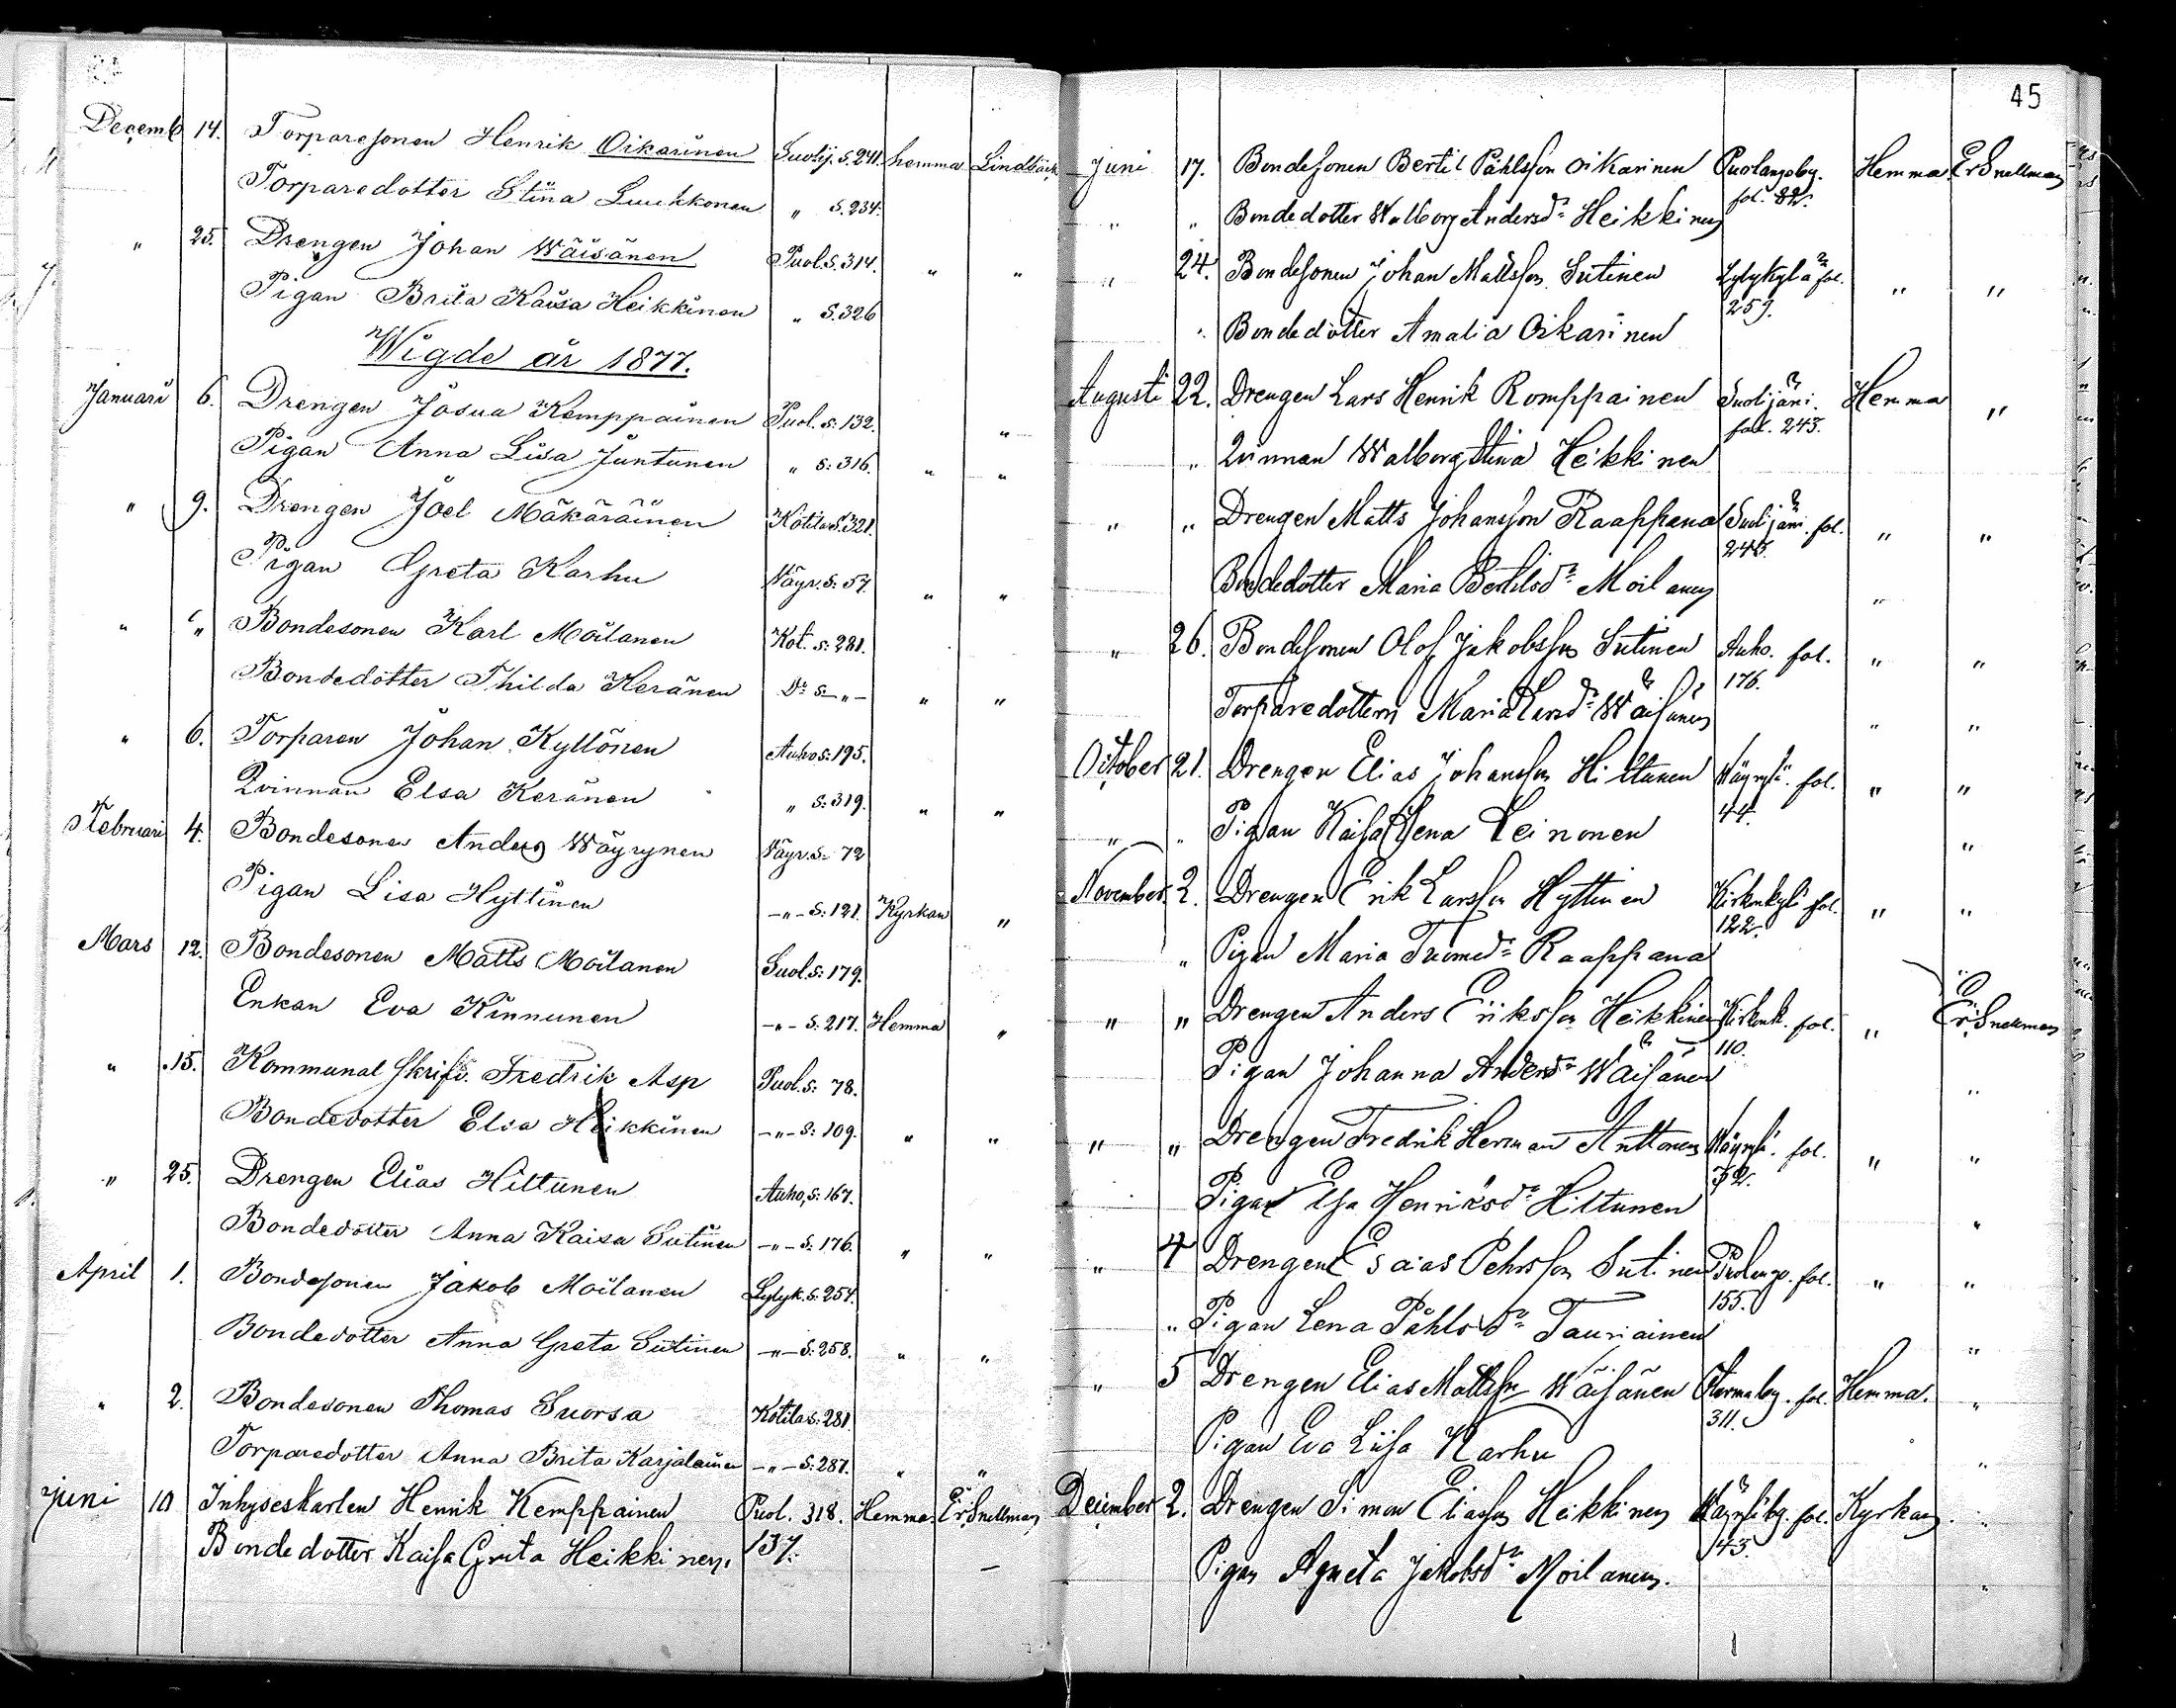 Decemb 14. Torparesonen Henrik Oikarinen Suolij. S. 241. hemma Lindbäck
Torparedotter Stina Luukkonen " S. 234.
" 25. Drengen Johan Wäisänen Puol. S. 314. " "
Pigan Brita Kaisa Heikkinen " S. 326
Wigde år 1877.
Januari 6. Drengen Josua Kemppainen Puol. s: 132. "
Pigan Anna Lisa Juntunen " s: 316. " "
" 9. Drengen Joel Mäkäräinen Kotila S. 321.
Pigan Greta Karhu Väyr. S: 57. " "
" " Bondesonen Karl Moilanen Kot. s: 281.
Bondedotter Thilda Keränen Do S- " - " "
" 6. Torparen Johan Kyllönen Auho s: 195.
Qvinnan Elsa Keränen " S: 319. " "
Februari 4. Bondesonen Anders Wäyrynen Väyr. S: 72
Pigan Lisa Hyttinen - " - S: 121. Kyrkan "
Mars 12. Bondesonen Matts Moilanen Suol. S: 179.
Enkan Eva Kinnunen - " - S: 217. Hemma "
" 15. Kommunal skrifv. Fredrik Asp Puol. S: 78.
Bondedotter Elsa Heikkinen - " - S: 109. " "
" 25. Drengen Elias Hiltunen Auho, S: 167.
Bondedotter Anna Kaisa Sutinen - " - S: 176. " "
April 1. Bondesonen Jakob Moilanen Lylyk. S: 254.
Bondedotter Anna Greta Sutinen - " - S: 258. " "
" 2. Bondesonen Thomas Suorsa Kotila s: 281
Torparedotter Anna Brita Karjalainen - " - S: 287. " "
Juni 10 Inhyseskarlen Henrik Kemppainen Puol. 318. Hemma. Er. Snellman
Bondedotter Kaisa Greta Heikkinen. 137. -
45
Juni 17. Bondesonen Bertil Påhlsson Oikarinen Puolangoby. Hemma. Er Snellman
fol. 82.
" " Bondedotter Walborg Andersdr Heikkinen
" 24. Bondesonen Johan Mattsson Sutinen Lylykylä fol. " "
259.
" Bondedotter Amalia Oikarinen
Augusti 22. Drengen Lars Henrik Romppainen Suolijärvi. Hemma "
fol. 243.
" Qvinnan Walborg Stina Heikkinen
" " Drengen Matts Johansson Raappana Suolijärvi fol. " "
Bondedotter Maria Bertilsdr Moilanen "
" 26. Bondesonen Olof Jakobsson Sutinen Auho. fol. " "
176.
Torparedottern Maria Larsdr Wäisänen " "
October 21. Drengen Elias Johansson Hiltunen fol. " "
44.
" " Pigan Kaisa Lena Leinonen "
November 2. Drengen Erik Larsson Hyttinen Kirkonkylä fol. " "
122.
" Pigan Maria Tuomasdr Raappana
" " Drengen Anders Eriksson Heikkinen Kirkonk. fol. " Er. Snellman
110.
Pigan Johanna Andersdr Wäisänen "
" " Drengen Fredrik Herman Anttonen fol. " "
Pigan Elsa Henriksdr Hiltunen "
" 4 Drengen Esaias Pehrsson Sutinen Puolango. fol. " "
155.
" Pigan Lena Påhlsdr Tauriainen "
" 5 Drengen Elias Mattsson Wäisänen fol. Hemma. "
311.
Pigan Eva Liisa Karhu "
December 2. Drengen Simon Eliasson Heikkinen fol. Kyrkan. "
Pigan Agneta Jakobsdr Moilanen. "